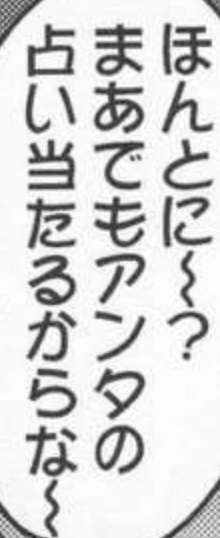 ほんとに〜？
まあでもアンタの
占い当たるからな〜